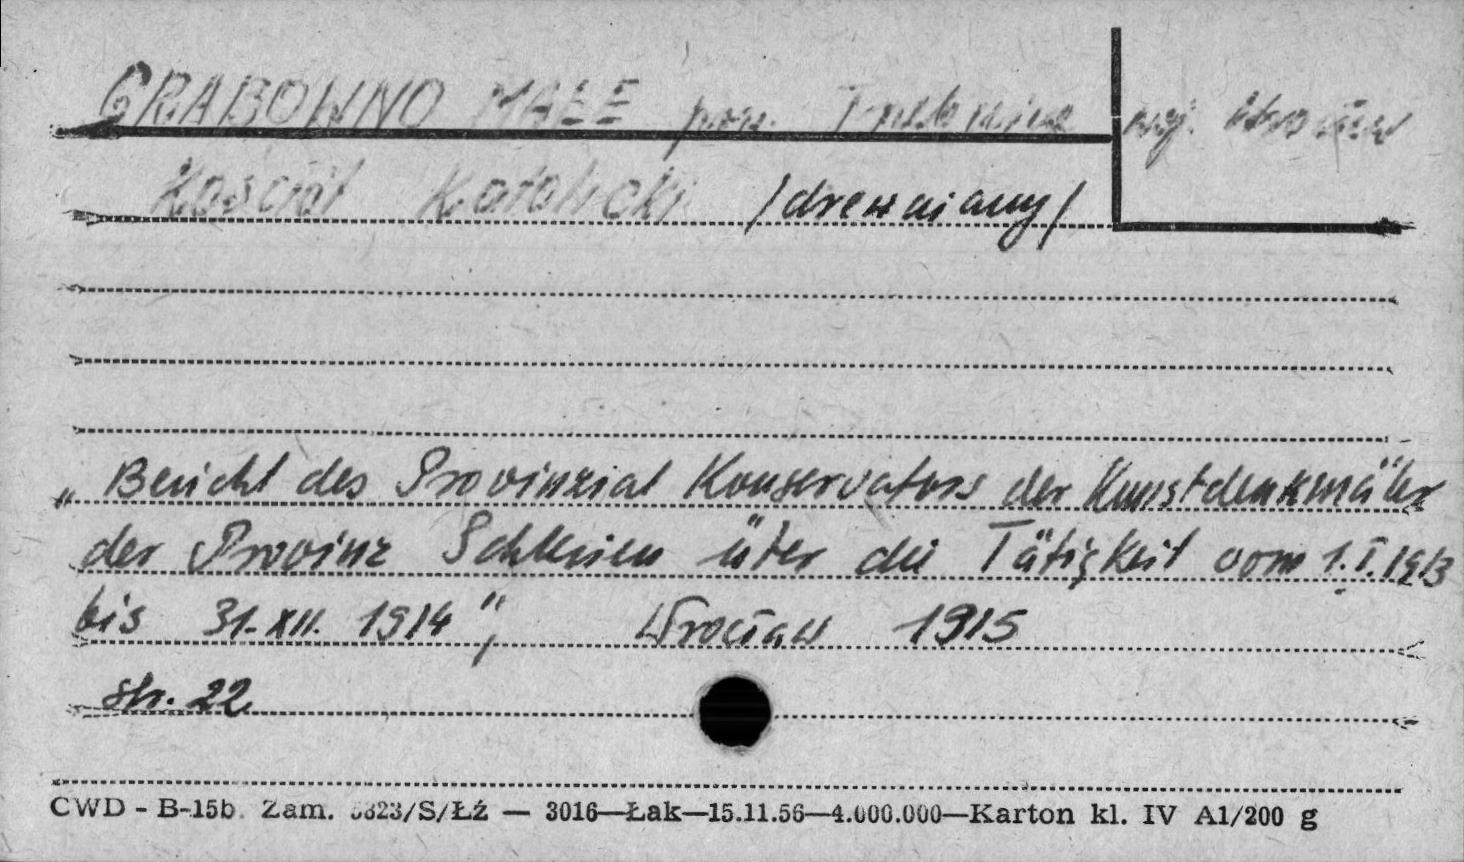 GRABOWNO MAŁE pow. Trzebnica woj. Wrocław
Kościół Katolicki /drewniany/
„Bericht des Provinzial Konservators der Kunstdenkmäler
der Provinz Schlesien über die Tätigkeit vom 1.I.1913
bis 31.XII.1914", Wrocław 1915
str. 22
CWD - B-15b. Zam. 5823/S/Łź — 3016—Łak—15.11.56—4.000.000—Karton kl. IV A1/200 g